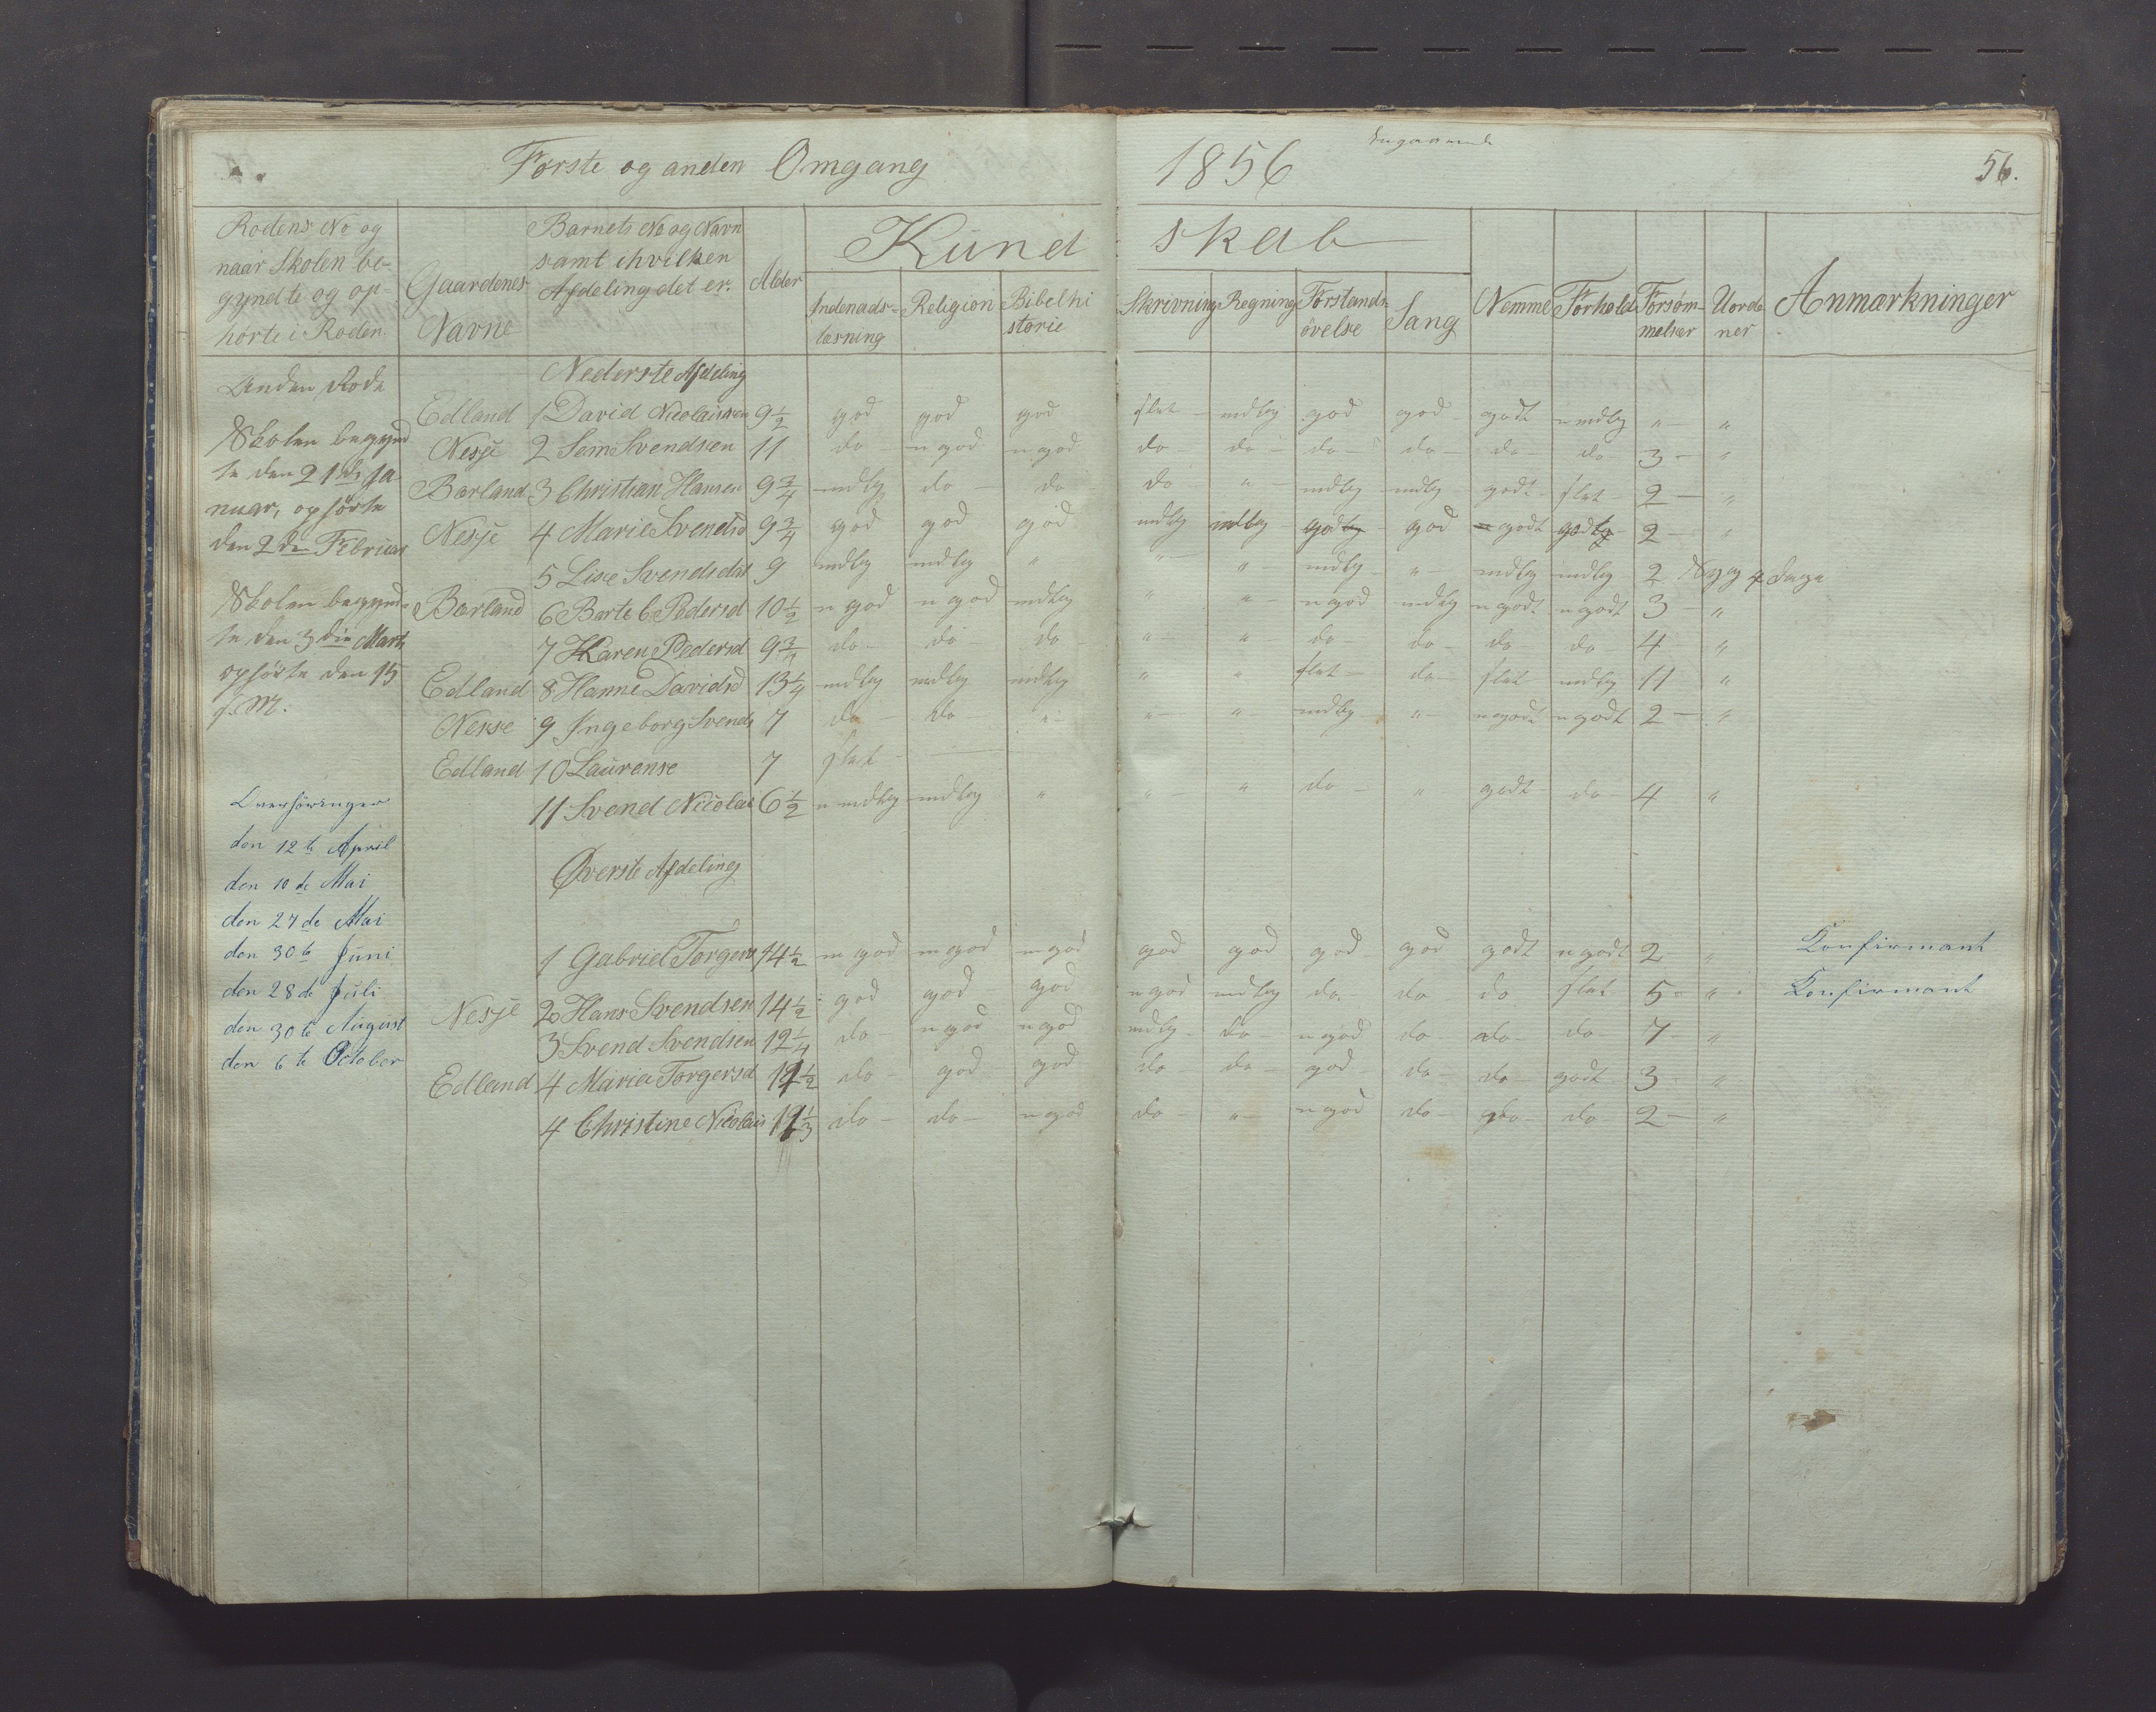 Første og anden Omgang 1856
56.
Rodens No og naar Skolen begyndte og ophørte i Roden
Gaardenes Navne
Barnets No og Navn samt i hvilken Afdeling det er.
Alder
Kundskab
Indenadslæsning
Religion
Bibelhistorie
Skrivning
Regning
Forstandsövelse
Sang
Nemme
Forhold
Forsømmelser
Uordener
Anmærkninger
Anden Rode
Skolen begynd
te den 21de Ja
nuar, ophörte
den 2den Februar
Skolen begynd-
te den 3die Marts
ophörte den 15
s. M.
Overhöringer
den 12te April
den 10de Mai
den 27de Mai
den 30te Juni
den 28de Juli
den 30te August
den 6te October
Nederste Afdeling
Edland 1 David Nicolaisen 9 1/2 god god god slet mdlg god god godt u mdlg " "
Nesje 2 Sem Svendsen 11 do n god n god do do do do do do 3 "
Barland 3 Christian Hansen 9 3/4 mdlg do do do " mdlg mdlg godt slet 2 "
Nesje 4 Marie Svendsd 9 3/4 god god god mdlg mdlg god god godt godt 2 "
5 Lise Svendsdat 9 mdlg mdlg " " " mdlg " mdlg mdlg 2 Syg 4 Dage
Barland 6 Berte C Pedersd 10 1/2 n god n god mdlg " " n god mdlg n godt n godt 3 "
7 Karen Pedersd 9 3/4 do do do " " do do do do 4 "
Edland 8 Hanne Davidsd 13 1/4 mdlg mdlg mdlg " " slet do slet mdlg 11 "
Nesse 9 Ingeborg Svends 7 do do " " " mdlg " n godt n godt 2 "
Edland 10 Laurense 7 slet
11 Svend Nicolai 6 1/2 u mdlg mdlg " " " do " godt do 4 "
Øverste Afdeling
1 Gabriel Torgers 14 1/2 m god m god m god god god god god godt n godt 2 " Konfirmant
Nesje 2 Hans Svendsen 14 1/2 god god god n god mdlg do do do slet 5 " Konfirmant
3 Svend Svendsen 12 1/4 do n god n god mdlg do n god do do do 7 "
Edland 4 Maria Torgersd 11 1/2 do god god do do god do do godt 3 "
4 Christine Nicolais 11 1/3 do do n god do " n god do do do 2 "